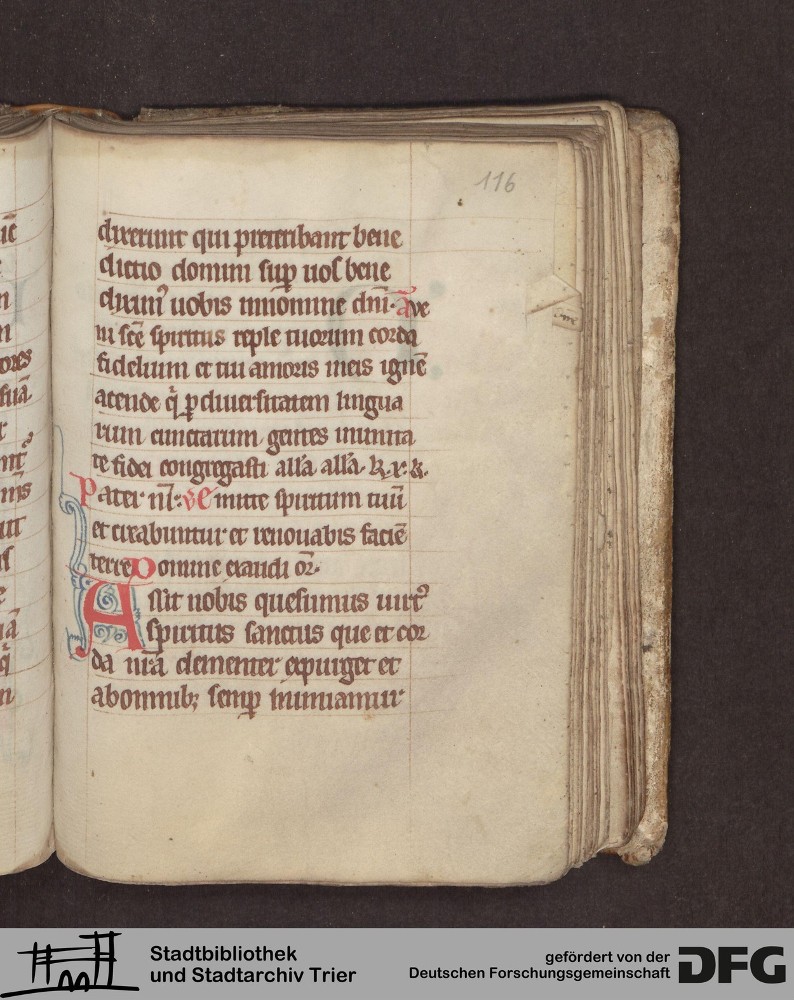 116
dixerunt qui preteribant bene
dictio domini sup̄ uos bene
diximꝰ uobis innomine dn̄i· ā ve
ni sc̄e spiritus reple tuorum corda
fidelium et tui amoris ineis ignē
acende q̄ ꝑ diuersitatem lingua
rum cunctarum gentes inunita
te fidei congregasti all'a all'a· k. x. k.
Pater nr̄· ve mitte spiritum tuū
et creabuntur et renouabis faciē
terre Domine exaudi or̄·
Assit nobis quesumus uirtꝰ
spiritus sanctus que et cor
da nr̄a clementer expurget et
abomnibꝫ semꝑ inimiamur
Stadtbibliothek
und Stadtarchiv Trier
gefördert von der
Deutschen Forschungsgemeinschaft
DFG